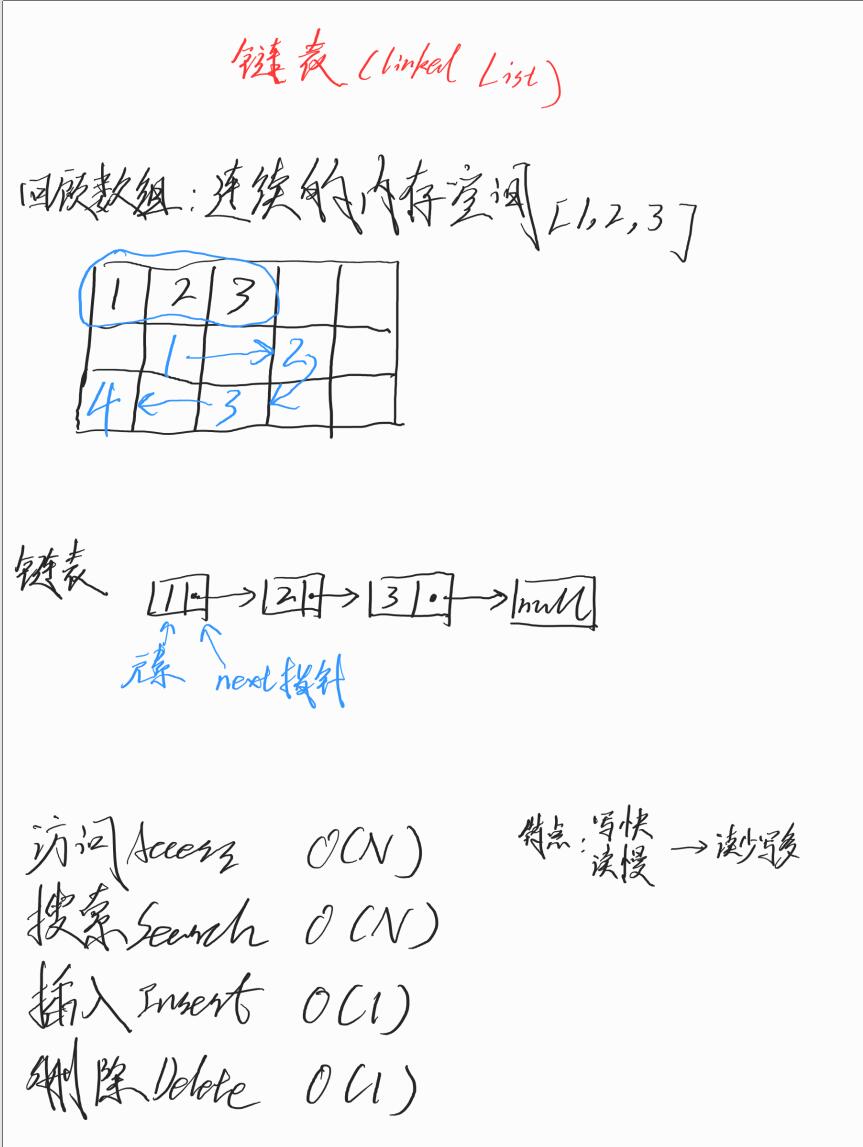 链表 (linked List)
回顾数组：连续的内存空间 [1,2,3]
1 2 3
1 2
4 3
链表
1 2 3 null
元素 next指针
访问Access O(N)
搜索Search O(N)
插入Insert O(1)
删除Delete O(1)
特点：写快
读慢 → 读少写多